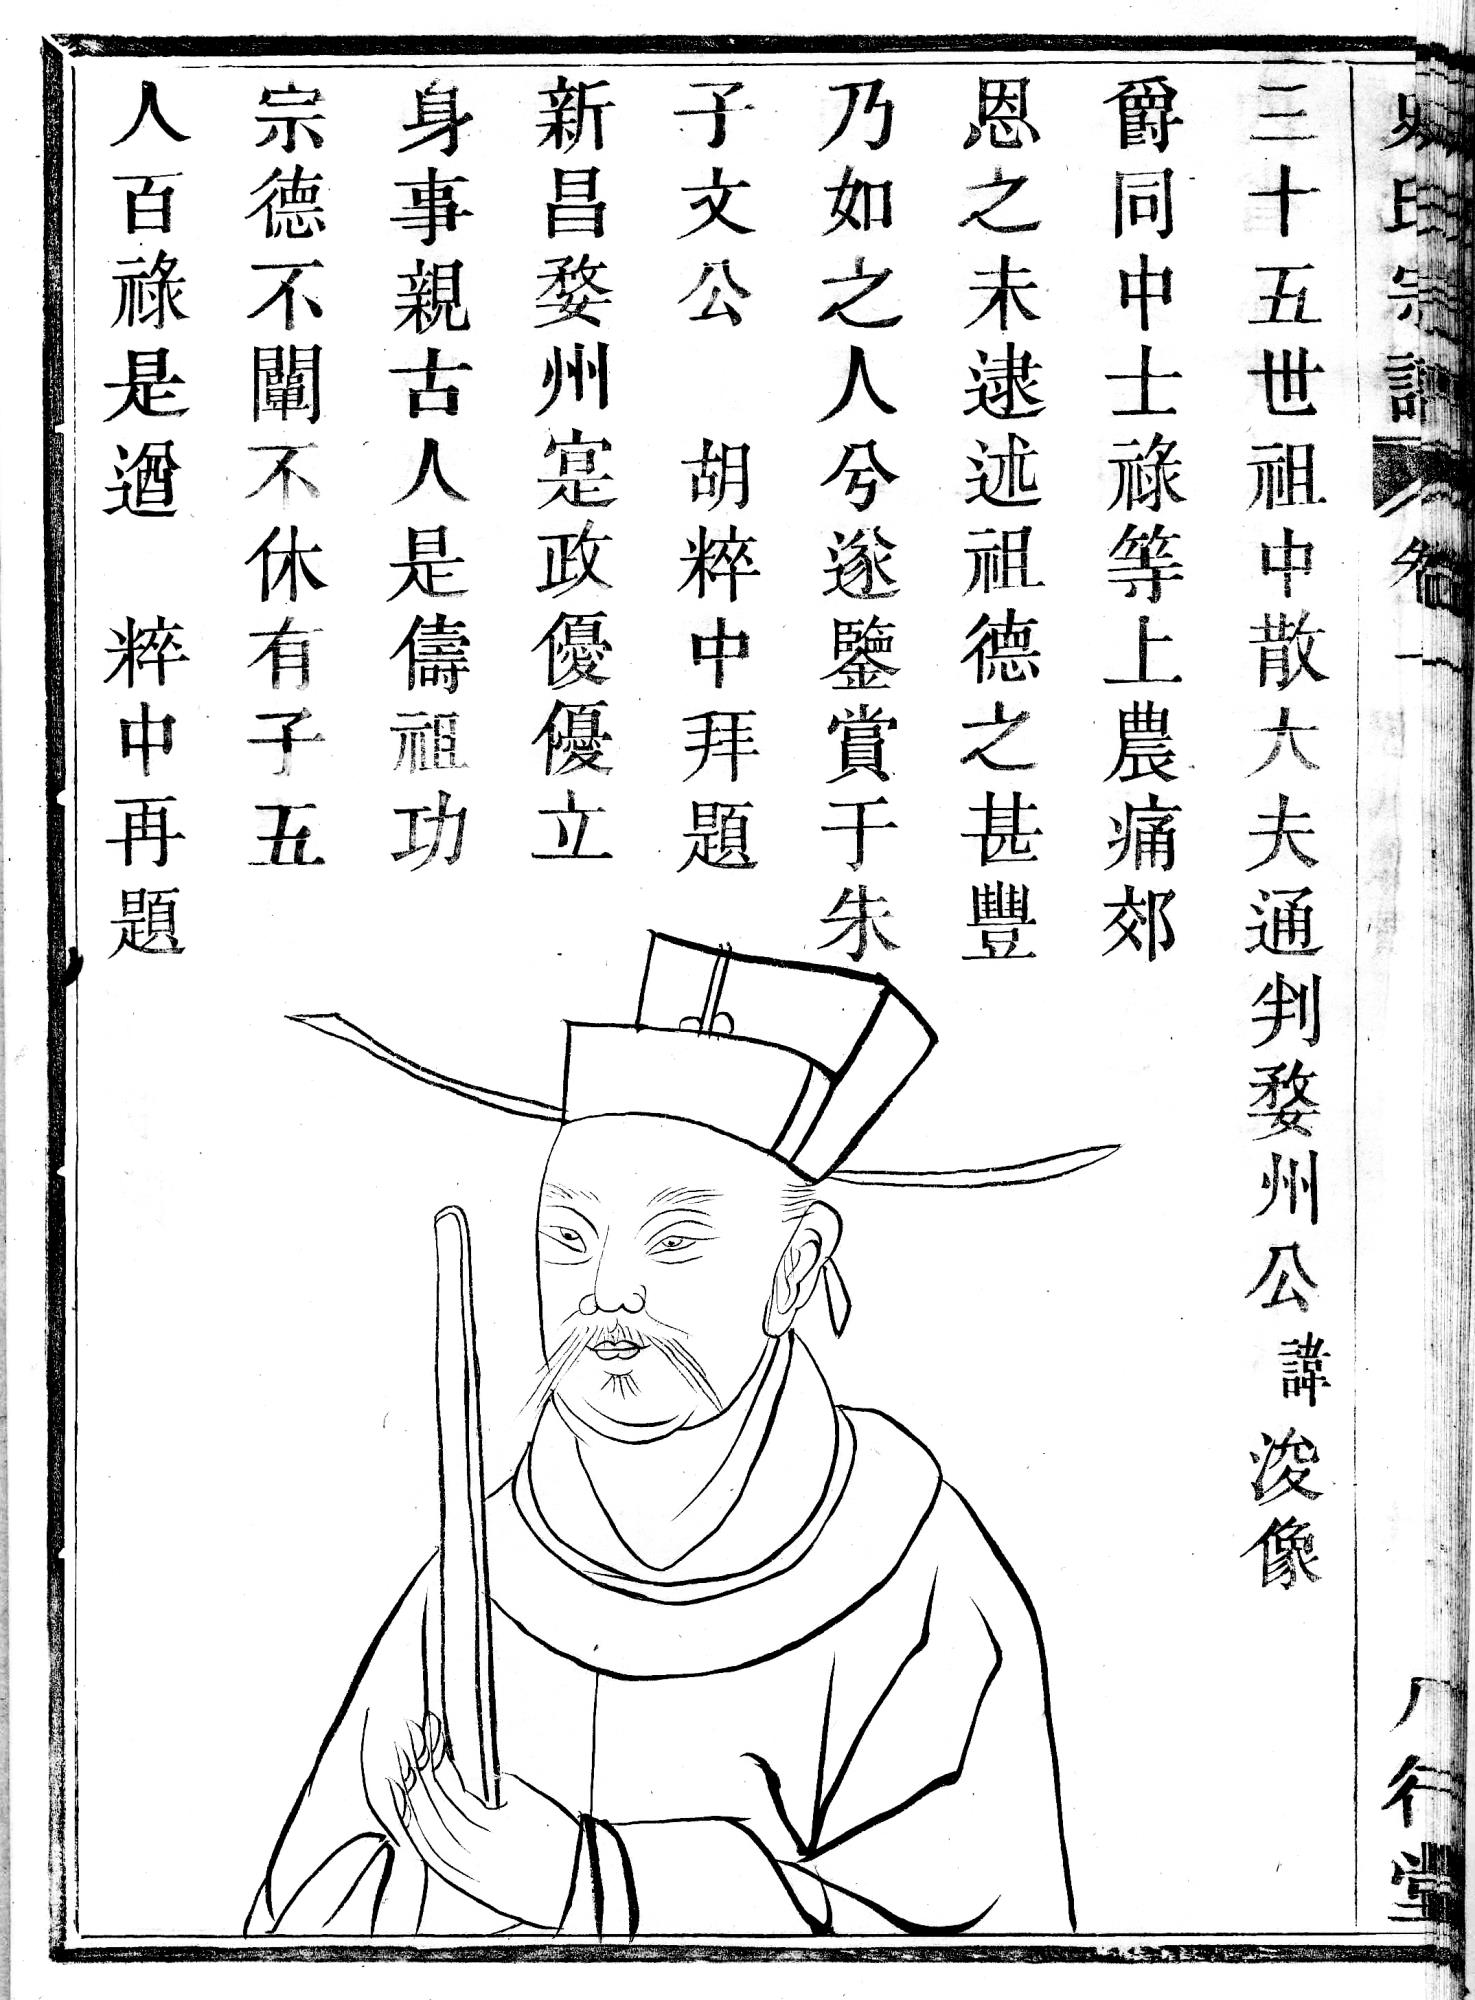 史氏宗譜 卷一 八行堂
三十五世祖中散大夫通判婺州公諱浚像
爵同中士祿等上農痛郊
恩之未逮述祖德之甚豐
乃如之人兮遂鑒賞于朱
子文公 胡粹中拜題
新昌婺州寔政優優立
身事親古人是儔祖功
宗德不闡不休有子五
人百祿是遒 粹中再題